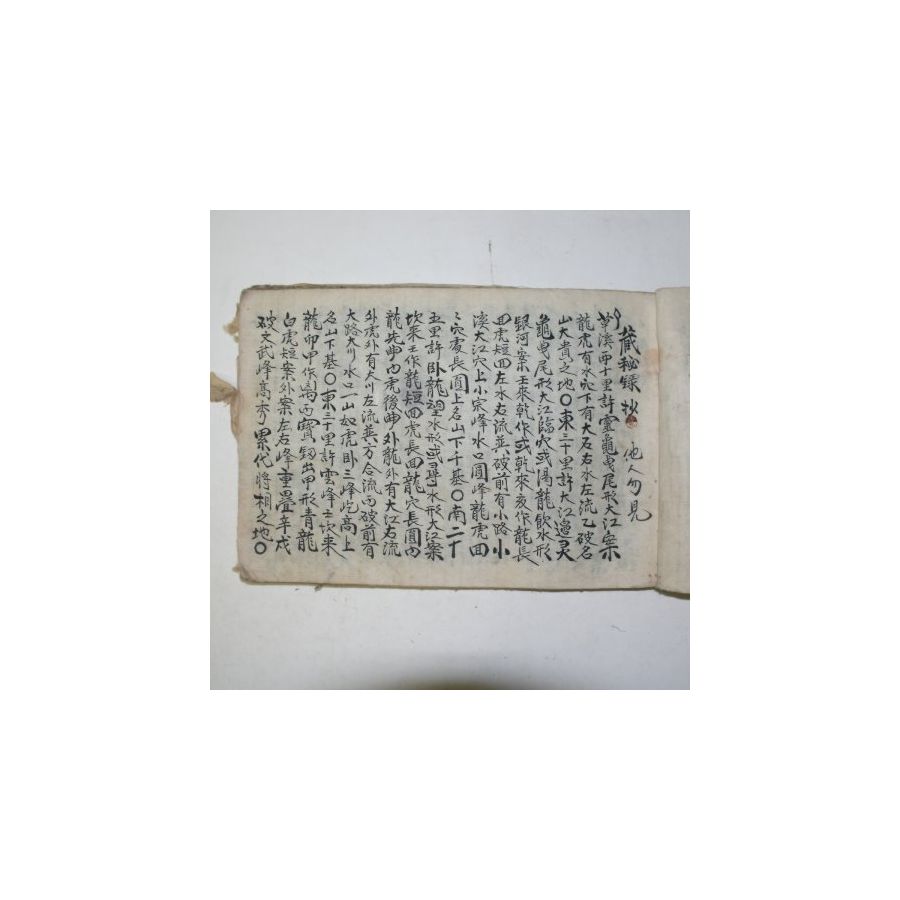 藏秘録 抄 他人勿見
華溪西十里許靈龜曳尾形大江案
龍虎有水口下有大石右水左流乙破名
山大貴之地〇東三十里許大江邊灵
龜曳尾形大江臨穴或渴龍飮水形
銀河案壬來乾作或乾來亥作龍長
回虎短回左水右流巽破前有小路小
溪大江穴上小宗峰水口圓峰龍虎回
〻穴處長圓上名山下千基〇南二十
五里許卧龍望水形或尋水形大江案
坎来壬作龍短回虎長回龍穴長圓内
龍先曲内虎後曲外龍外有大江右流
外虎外有大川左流巽方合流丙破前有
大路大川水口一山如虎卧三峰屹高上
名山下基〇東三十里許雲峰士坎来
龍卯甲作局丙寶釼出甲形青龍
白虎短案外案左右峰重疊辛戌
破文武峰高秀累代將相之地〇